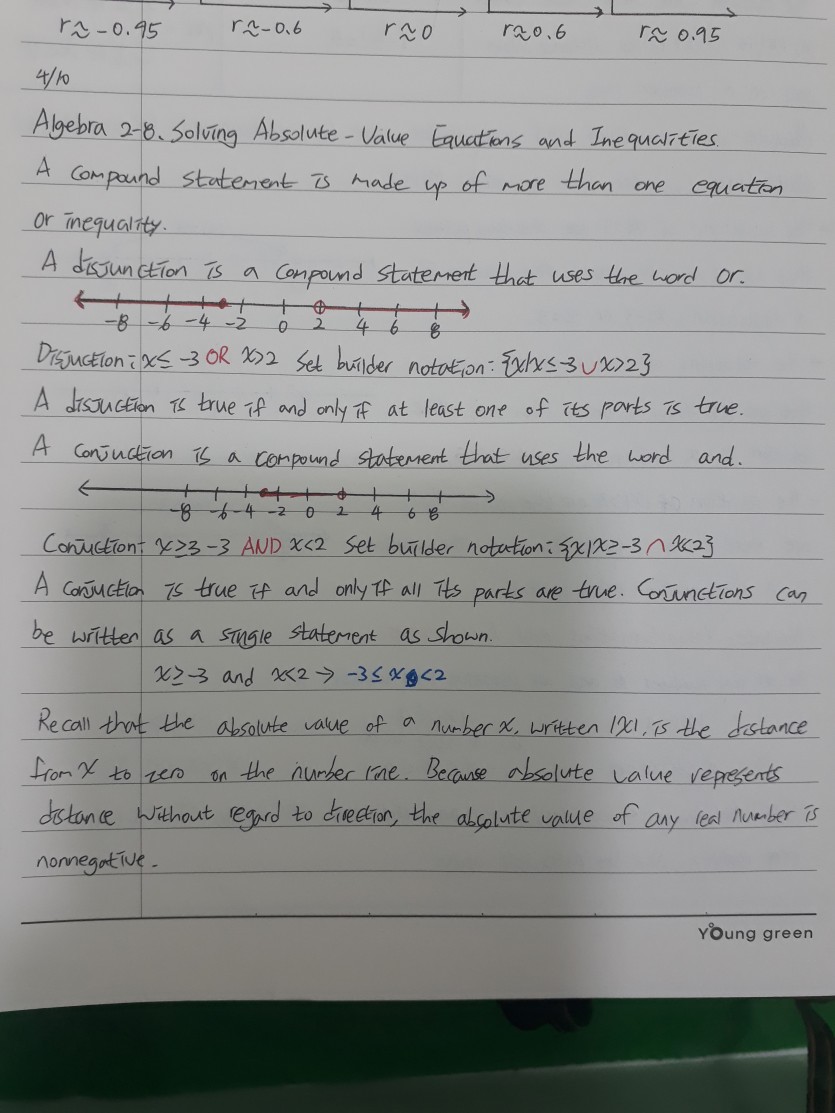 r≈-0.95 r≈-0.6 r≈0 r≈0.6 r≈0.95
4/10
Algebra 2-8. Solving Absolute-Value Equations and Inequalities.
A compound statement is made up of more than one equation
or inequality.
A disjunction is a compound statement that uses the word or.
-8 -6 -4 -2 0 2 4 6 8
Disjuction: x≤-3 OR x>2 Set builder notation: {x|x≤-3 ∪ x>2}
A disjuction is true if and only if at least one of its parts is true.
A conjuction is a compound statement that uses the word and.
-8 -6 -4 -2 0 2 4 6 8
Conjuction: x≥3-3 AND x<2 Set builder notation: {x|x≥-3 ∩ x<2}
A conjuction is true if and only if all its parts are true. Conjunctions can
be written as a single statement as shown.
x≥-3 and x<2 → -3≤x<2
Recall that the absolute value of a number x, written |x|, is the distance
from x to zero on the number line. Because absolute value represents
distance without regard to direction, the absolute value of any real number is
nonnegative.
Young green